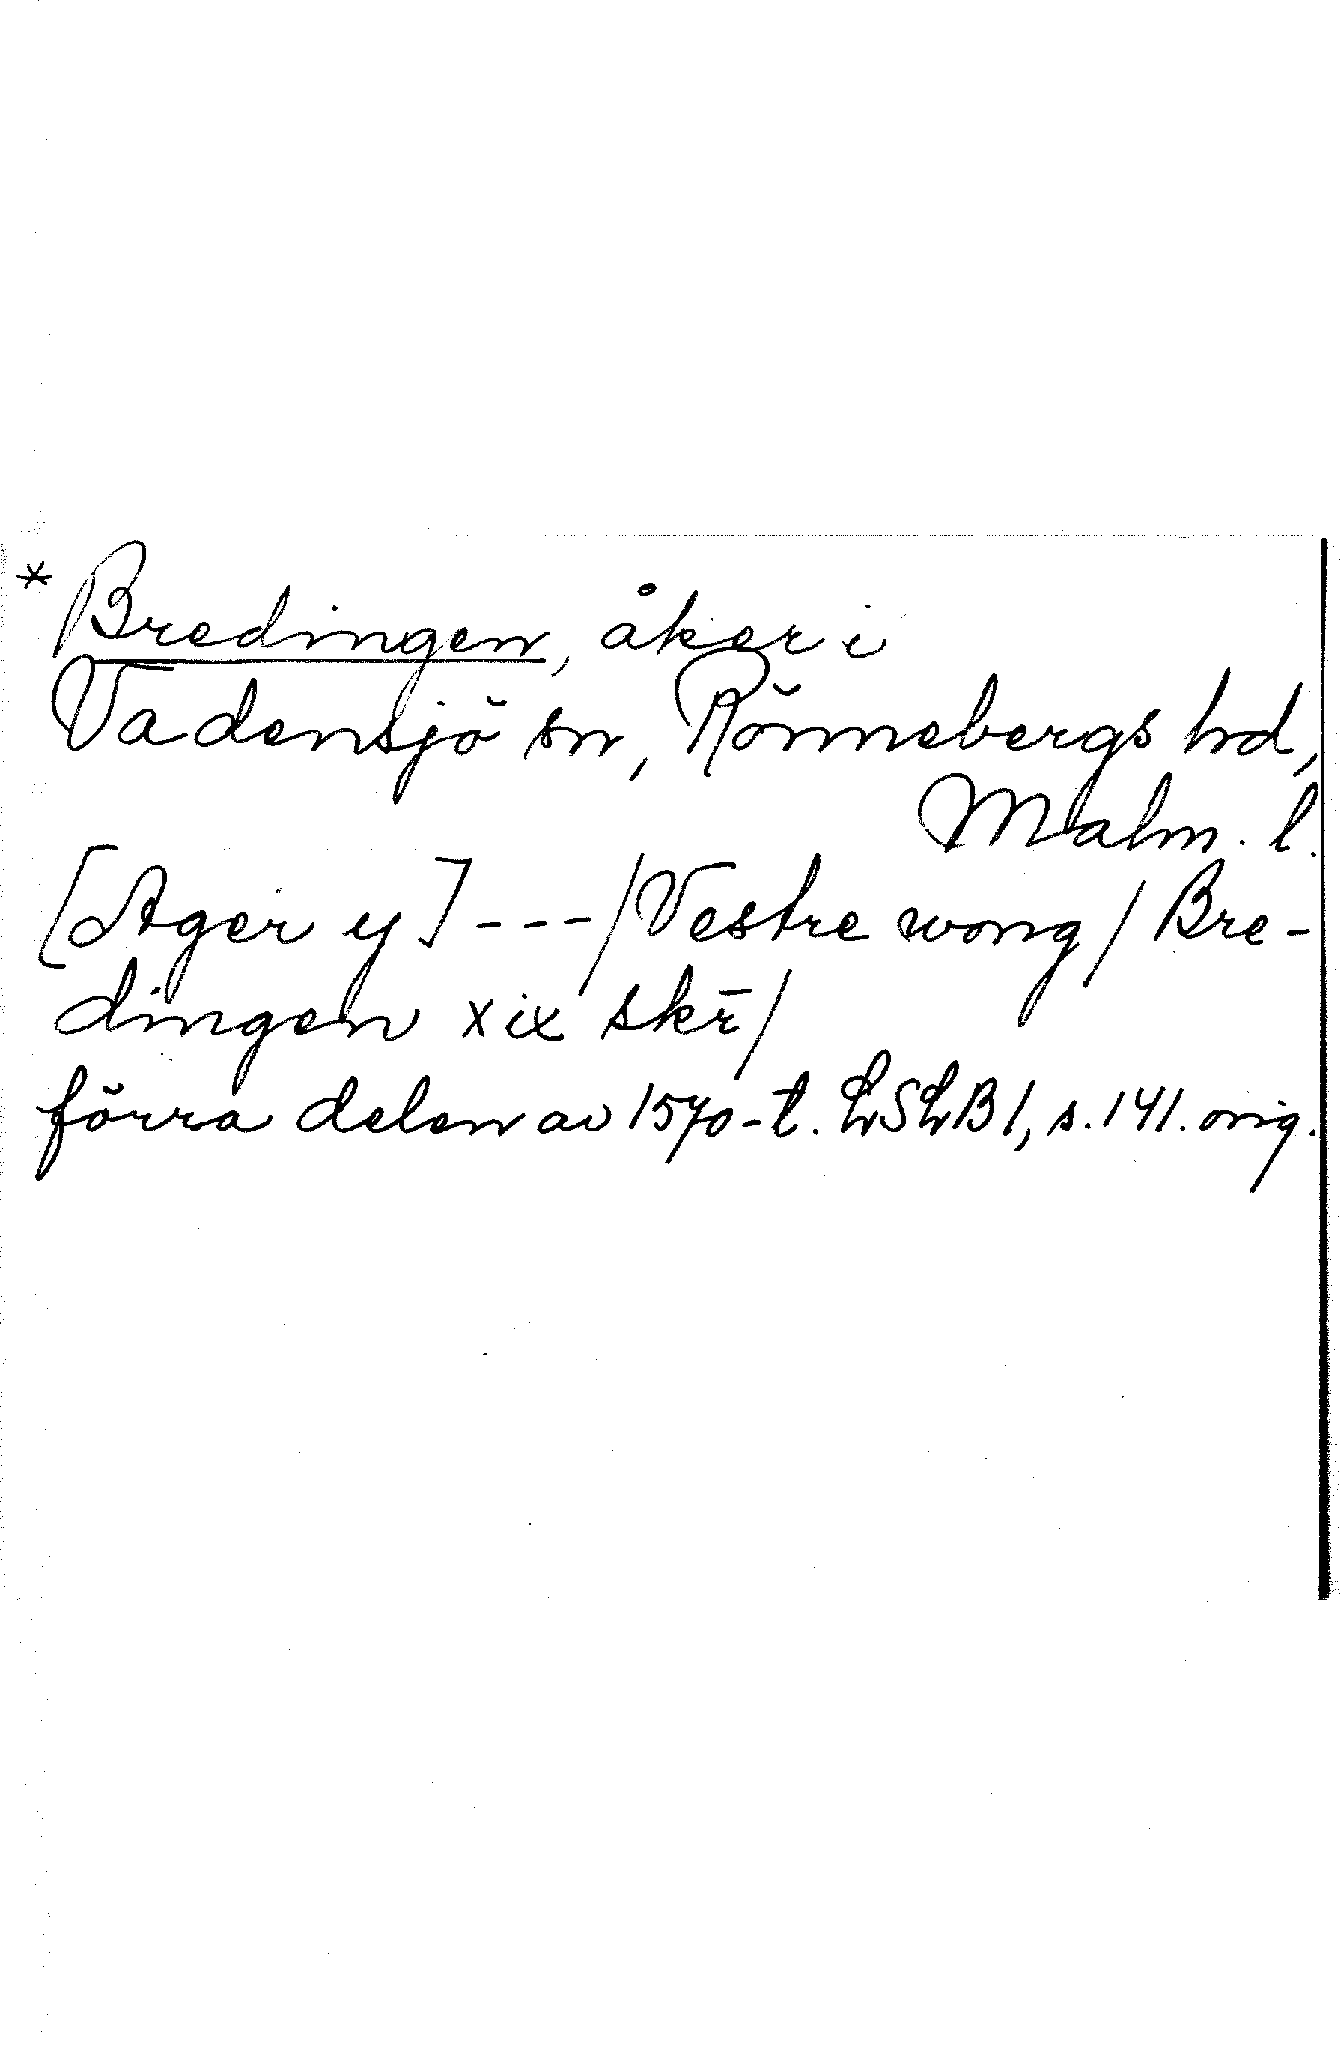 * Bredingen, åker i
Vadensjö sn, Rönnebergs hd,
Malm. l.
[Ager y] --- / Vestre wong / Bre-
dingen xix skr̄ /
förra delen av 1570-t. LSLB 1, s. 141. orig.